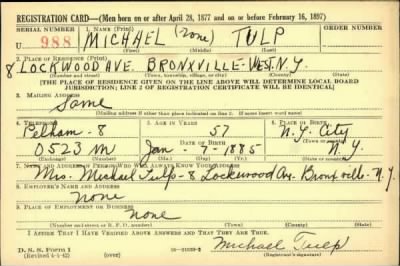 REGISTRATION CARD—(Men born on or after April 28, 1877 and on or before February 16, 1897)
SERIAL NUMBER 1. NAME (Print) ORDER NUMBER
U 988 MICHAEL (none) TULP
(First) (Middle) (Last)
2. PLACE OF RESIDENCE (Print)
8 LOCKWOOD AVE. BRONXVILLE-WEST. N.Y.
(Number and street) (Town, township, village, or city) (County) (State)
[THE PLACE OF RESIDENCE GIVEN ON THE LINE ABOVE WILL DETERMINE LOCAL BOARD
JURISDICTION; LINE 2 OF REGISTRATION CERTIFICATE WILL BE IDENTICAL]
3. MAILING ADDRESS
Same
[Mailing address if other than place indicated on line 2. If same insert word same]
4. TELEPHONE 5. AGE IN YEARS 6. PLACE OF BIRTH
Pelham-8 57 N.Y. City
DATE OF BIRTH (Town or county)
0523 M Jan - 7 - 1885 N.Y.
(Exchange) (Number) (Mo.) (Day) (Yr.) (State or country)
7. NAME AND ADDRESS OF PERSON WHO WILL ALWAYS KNOW YOUR ADDRESS
Mrs. Michael Tulp - 8 Lockwood Av. Bronxville - N.Y.
8. EMPLOYER'S NAME AND ADDRESS
none
9. PLACE OF EMPLOYMENT OR BUSINESS
none
(Number and street or R. F. D. number) (Town) (County) (State)
I AFFIRM THAT I HAVE VERIFIED ABOVE ANSWERS AND THAT THEY ARE TRUE.
D. S. S. Form 1
(Revised 4-1-42) (over) Michael Tulp
(Registrant's signature)